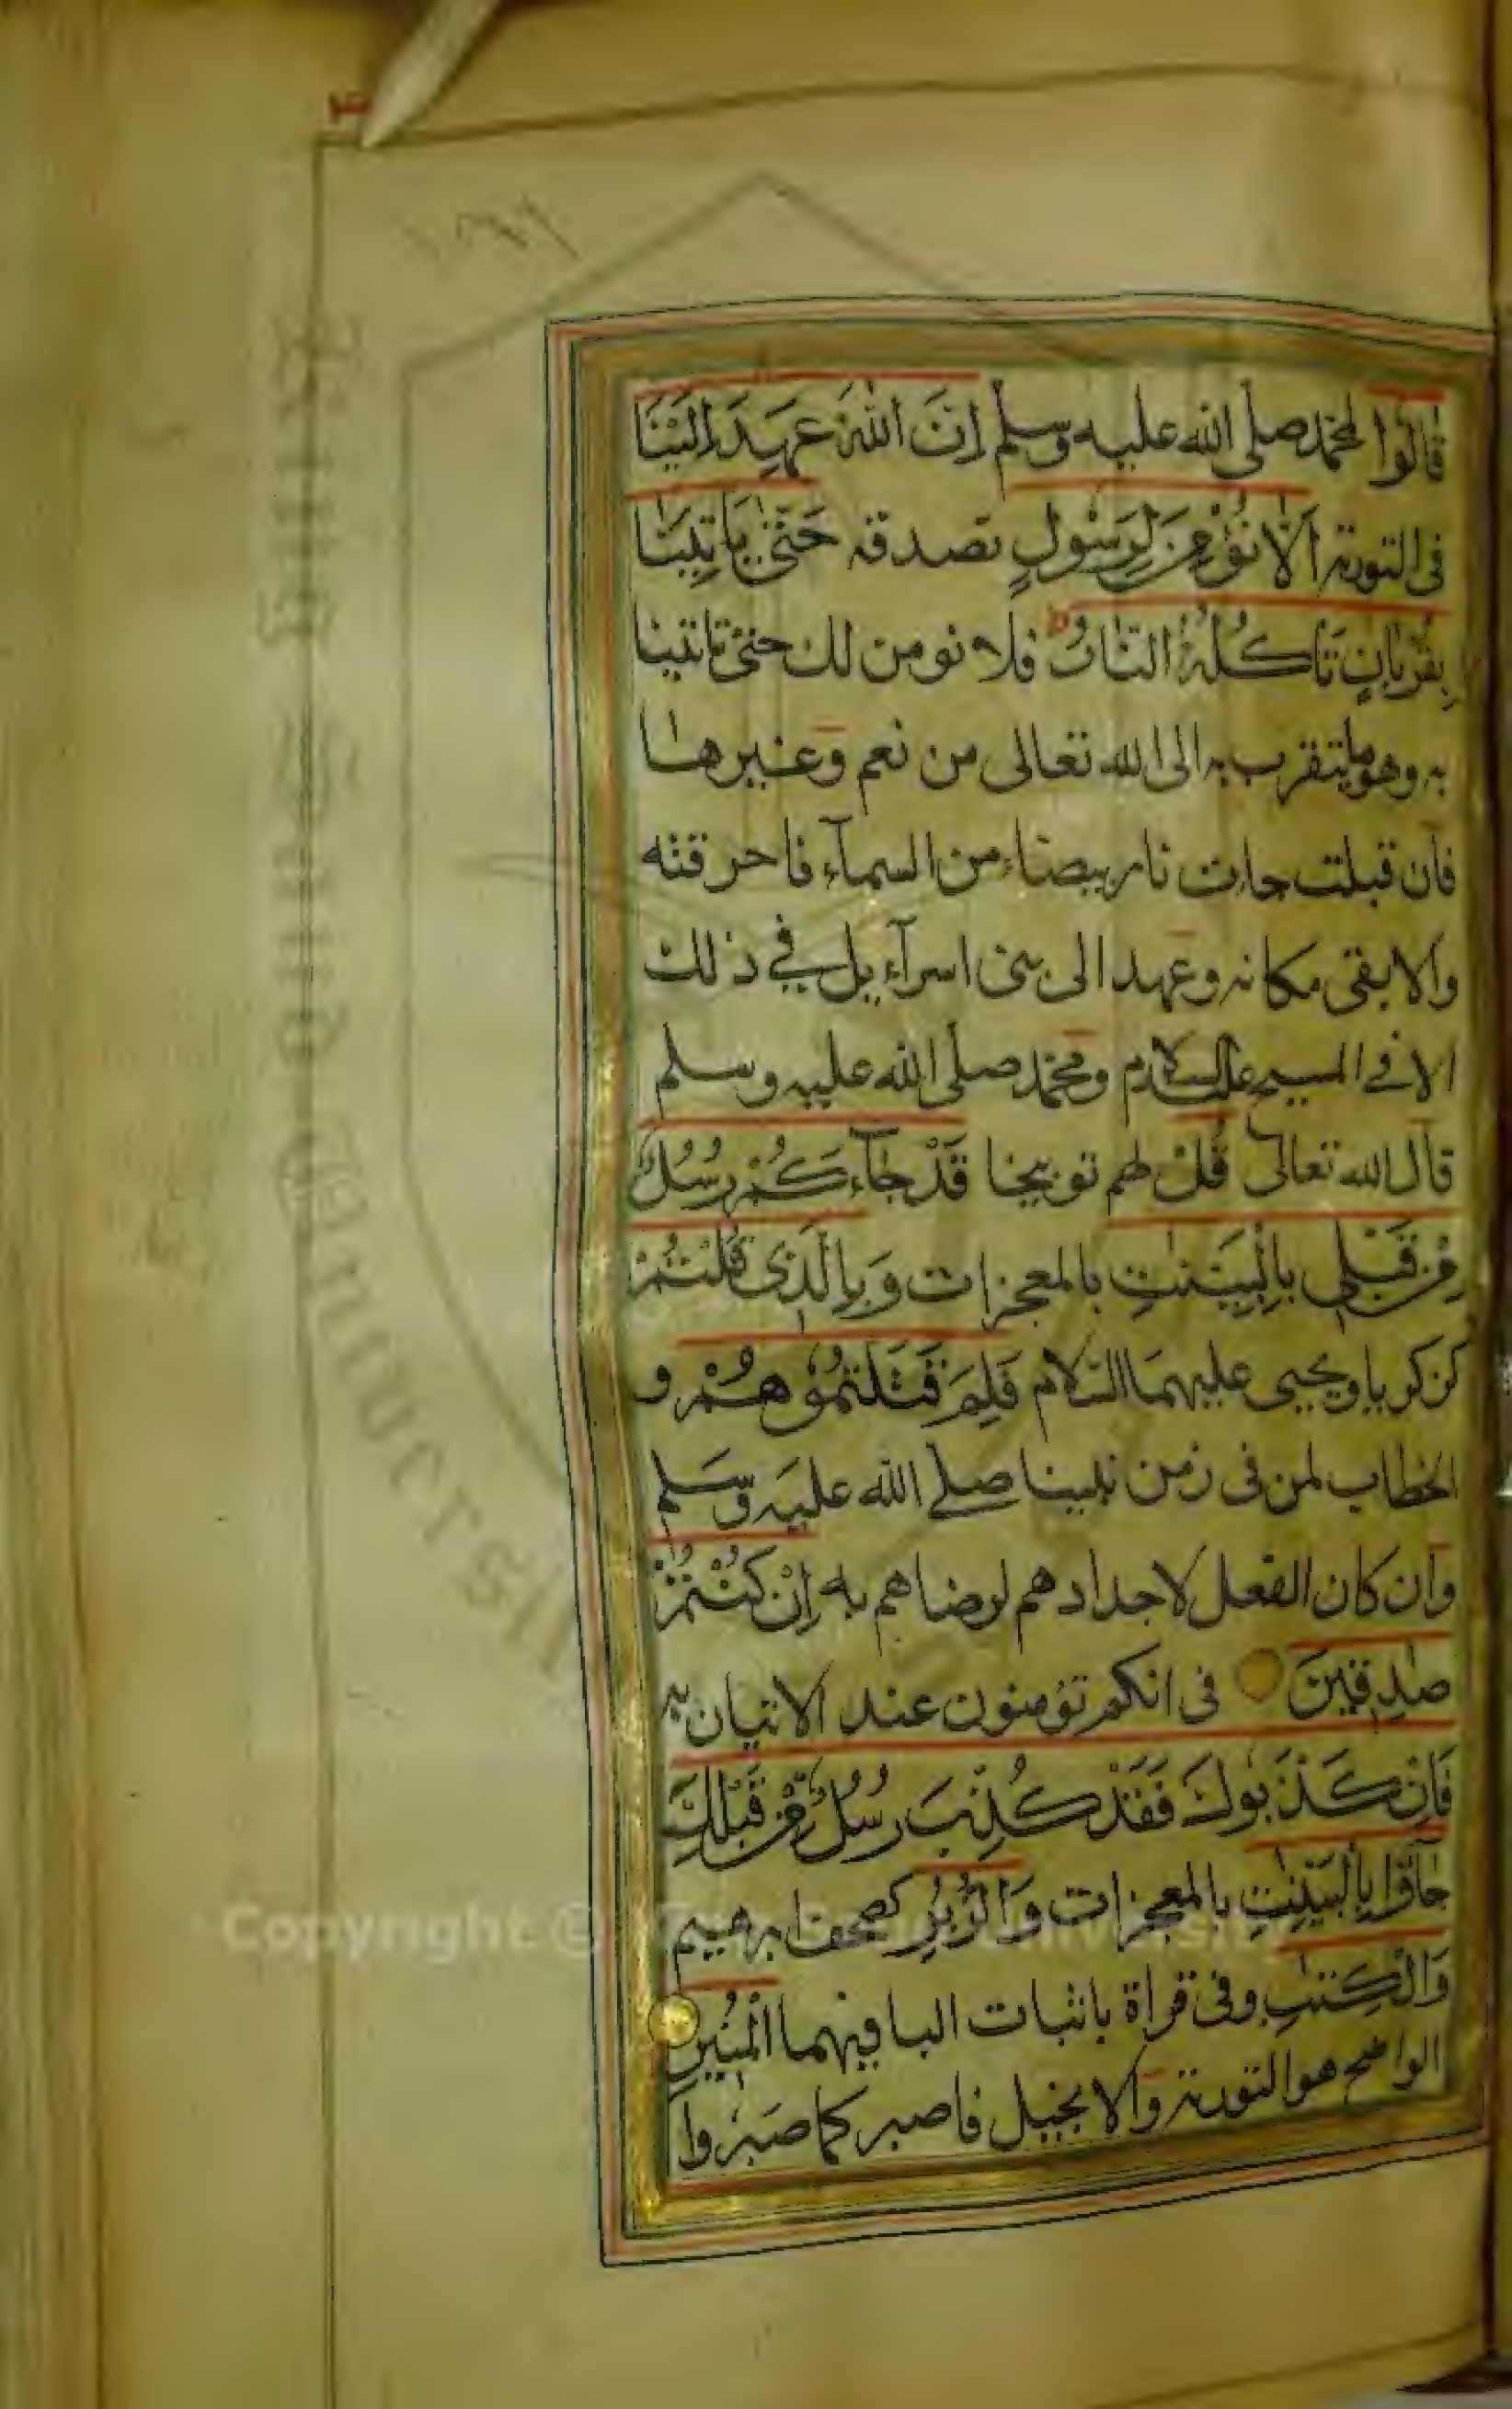 ١٦٦
قَالُوا لمحمد صلى الله عليه وسلم اِنَّ اللّٰهَ عَهِدَ اِلَيْنَا
فى التورىة اَلَّا نُؤْمِنَ لِرَسُولٍ نصدقه حَتّٰى يَاْتِيَنَا
بِقُرْبَانٍ تَاْكُلُهُ النَّارُ ط فلا نومن لك حتى تاتينا
به وهو ما يتقرب به الى الله تعالى من نعم وغيرها
فان قبلت جاءت نار بيضاء من السمآء فاحرقته
والا بقى مكانه وعهد الى بنى اسرآءيل في ذلك
الا في المسيح عليه السلام ومحمد صلى الله عليه وسلم
قال الله تعالى قُلْ لهم توبيخا قَدْ جَآءَكُمْ رُسُلٌ
مِنْ قَبْلِى بِالْبَيِّنٰتِ بالمعجزات وَبِالَّذِى قُلْتُمْ
كزكريا ويحيى عليهما السلام فَلِمَ قَتَلْتُمُوْهُمْ و
الخطاب لمن فى زمن نبينا صلى الله عليه وسلم
وان كان الفعل لاجدادهم لرضاهم به اِنْ كُنْتُمْ
صٰدِقِينَ فى انكم تؤمنون عند الاتيان به
فَاِنْ كَذَّبُوكَ فَقَدْ كُذِّبَ رُسُلٌ مِنْ قَبْلِكَ
جَآؤُا بِالْبَيِّنٰتِ بالمعجزات وَالزُّبُرِ كصحف ابرهيم
وَالْكِتٰبِ وفى قراة باثبات البا فيهما الْمُنِيرِ
الواضح هو التورىة والانجيل فاصبر كما صبروا
Copyright © University